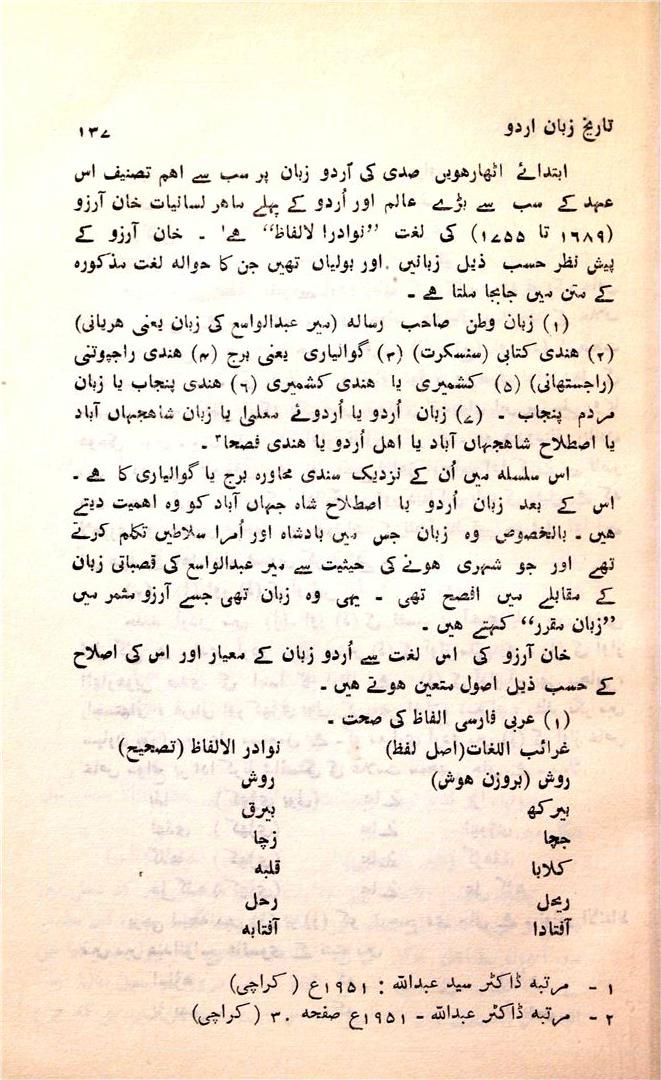 تاریخ زبان اردو ۱۳۷
ابتدائے اٹھارھویں صدی کی اُردو زبان پر سب سے اھم تصنیف اس
عہد کے سب سے بڑے عالم اور اُردو کے پہلے ماھر لسانیات خان آرزو
(۱۶۸۹ تا ۱۷۵۵) کی لغت ”نوادرا لالفاظ“ ھے۱ ۔ خان آرزو کے
پیش نظر حسب ذیل زبانیں اور بولیاں تھیں جن کا حوالہ لغت مذکورہ
کے متن میں جابجا ملتا ھے ۔
(۱) زبان وطن صاحب رسالہ (میر عبدالواسع کی زبان یعنی ھریانی)
(۲) ھندی کتابی (سنسکرت) (۳) گوالیاری یعنی برج (۴) ھندی راجپوتنی
(راجستھانی) (۵) کشمیری یا ھندی کشمیری (۶) ھندی پنجاب یا زبان
مردم پنجاب ۔ (۷) زبان اُردو یا اُردوئے معلیٰ یا زبان شاھجہاں آباد
یا اصطلاح شاھجہاں آباد یا اھل اُردو یا ھندی فصحا۲ ۔
اس سلسلہ میں اُن کے نزدیک سندی محاورہ برج یا گوالیاری کا ھے ۔
اس کے بعد زبان اُردو یا اصطلاح شاہ جہاں آباد کو وہ اھمیت دیتے
ھیں ۔ بالخصوص وہ زبان جس میں بادشاہ اور اُمرا سلاطیں تکلم کرتے
تھے اور جو شہری ھونے کی حیثیت سے میر عبدالواسع کی قصباتی زبان
کے مقابلے میں افصح تھی ۔ یہی وہ زبان تھی جسے آرزو مثمر میں
”زبان مقرر“ کہتے ھیں ۔
خان آرزو کی اس لغت سے اُردو زبان کے معیار اور اس کی اصلاح
کے حسب ذیل اصول متعین ھوتے ھیں ۔
(۱) عربی فارسی الفاظ کی صحت ۔
غرائب اللغات(اصل لفظ) نوادر الالفاظ (تصحیح)
روش (بروزن ھوش) روش
بیرکھ بیرق
ججا زچا
کلابا قلبہ
ریحل رحل
آفتادا آفتابہ
۱ - مرتبہ ڈاکٹر سید عبداللہ : ۱۹۵۱ع (کراچی)
۲ - مرتبہ ڈاکٹر عبداللہ - ۱۹۵۱ع صفحہ ۳۰ (کراچی)